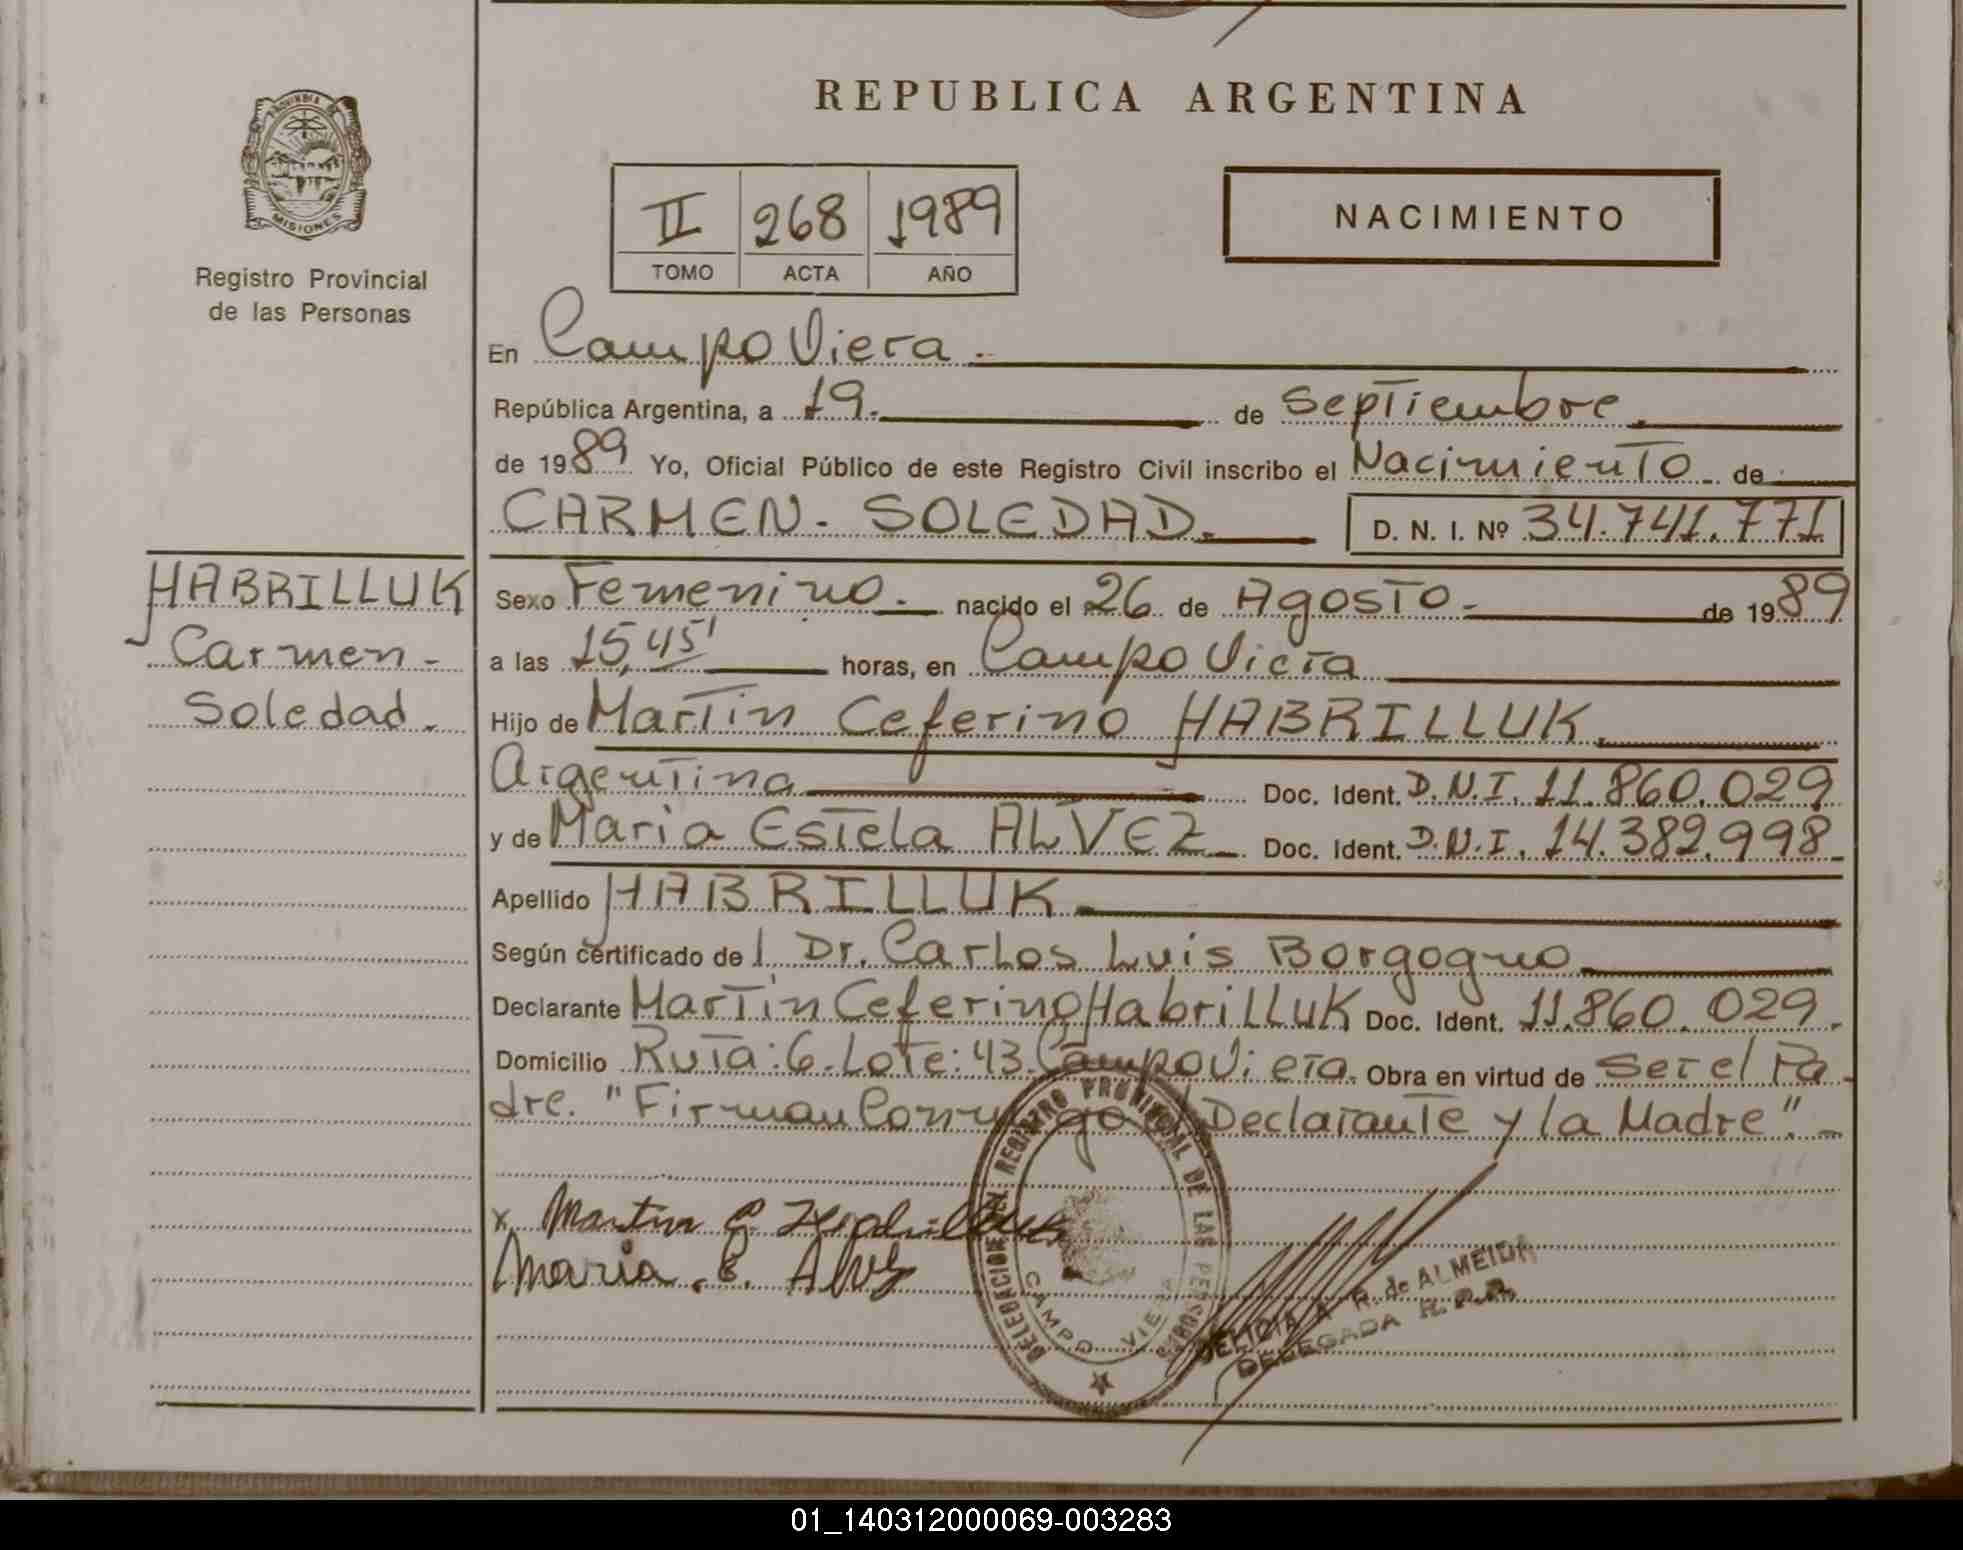 REPUBLICA ARGENTINA
PROVINCIA DE
MISIONES
Registro Provincial
de las Personas
II 268 1989
TOMO ACTA AÑO
NACIMIENTO
En Campo Viera.
República Argentina, a 19. de Septiembre.
de 1989 Yo, Oficial Público de este Registro Civil inscribo el Nacimiento de
CARMEN. SOLEDAD. D. N. I. Nº 34.741.771
HABRILLUK
Carmen-
Soledad.
Sexo Femenino. nacido el 26 de Agosto. de 1989
a las 15,45' horas, en Campo Viera
Hijo de Martin Ceferino HABRILLUK.
Argentina Doc. Ident. D.N.I. 11.860.029
y de Maria Estela ALVEZ Doc. Ident. D.N.I. 14.382.998
Apellido HABRILLUK
Según certificado de l Dr. Carlos Luis Borgogno
Declarante Martin Ceferino Habrilluk Doc. Ident. 11.860.029.
Domicilio Ruta: 6. Lote: 43. Campo Viera. Obra en virtud de ser el Pa
dre. "Firman Conmigo el Declarante y la Madre".
x Martin C. Habrilluk
Maria E. Alvez
DELEGACION DEL REGISTRO PROVINCIAL DE LAS PERSONAS
CAMPO VIERA
A R. de ALMEIDA
DELEGADA R.P.P.
01_140312000069-003283